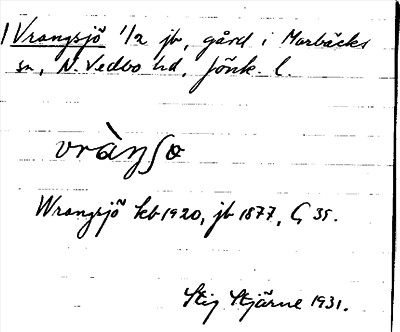 Vrangsjö 1/2 jb, gård i Marbäcks
sn, N. Vedbo hd, Jönk. l.
vràŋʃɵ
Wrangsjö kb 1920, jb 1877, G 35.
Stig Stjärne 1931.